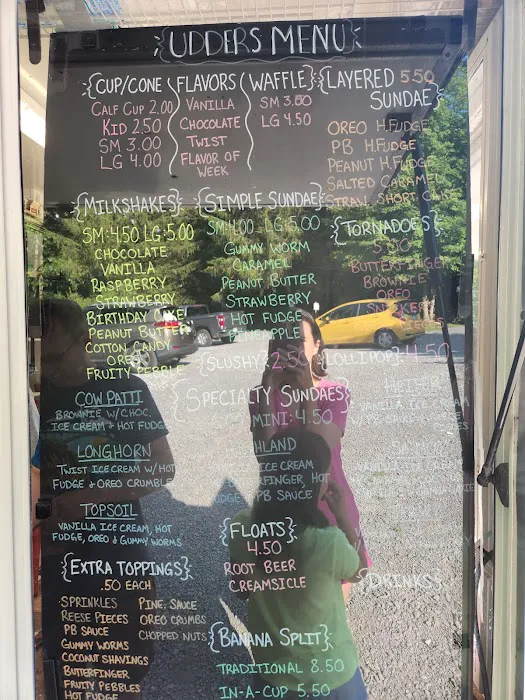 UDDERS MENU
CUP/CONE
CALF CUP 2.00
KID 2.50
SM 3.00
LG 4.00
FLAVORS
VANILLA
CHOCOLATE
TWIST
FLAVOR OF
WEEK
WAFFLE
SM 3.50
LG 4.50
LAYERED 5.50
SUNDAE
OREO H.FUDGE
PB H.FUDGE
PEANUT H.FUDGE
SALTED CARAMEL
STRAW. SHORT CAKE
MILKSHAKES
SM: 4.50 LG: 5.00
CHOCOLATE
VANILLA
RASPBERRY
STRAWBERRY
BIRTHDAY CAKE
PEANUT BUTTER
COTTON CANDY
OREO
FRUITY PEBBLE
SIMPLE SUNDAE
SM: 4.00 LG: 5.00
GUMMY WORM
CARAMEL
PEANUT BUTTER
STRAWBERRY
HOT FUDGE
PINEAPPLE
TORNADOES
5.50
BUTTERFINGER
BROWNIE
OREO
SLUSHY 2.50
LOLLIPOP 4.50
SPECIALTY SUNDAES
MINI: 4.50
COW PATTI
BROWNIE W/CHOC.
ICE CREAM & HOT FUDGE
LONGHORN
TWIST ICE CREAM W/HOT
FUDGE & OREO CRUMBLE
TOPSOIL
VANILLA ICE CREAM, HOT
FUDGE, OREO & GUMMY WORMS
HLAND
ICE CREAM
HOT
PB SAUCE
FLOATS
4.50
ROOT BEER
CREAMSICLE
DRINKS
EXTRA TOPPINGS
.50 EACH
SPRINKLES
REESE PIECES
PB SAUCE
GUMMY WORMS
COCONUT SHAVINGS
BUTTERFINGER
FRUITY PEBBLES
HOT FUDGE
PINE. SAUCE
OREO CRUMBS
CHOPPED NUTS
BANANA SPLIT
TRADITIONAL 8.50
IN-A-CUP 5.50